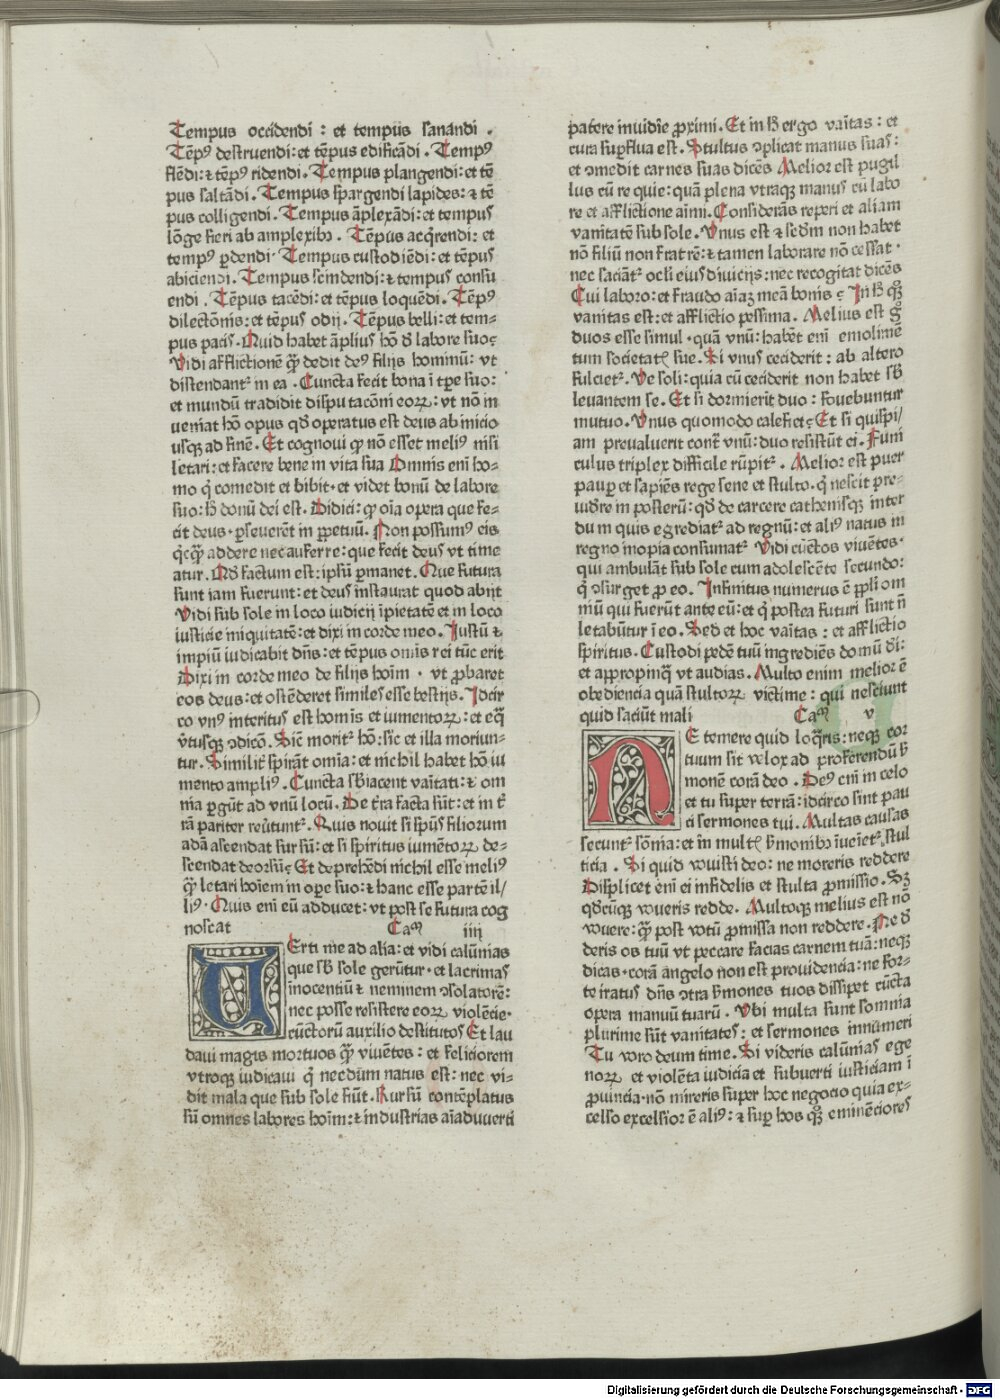 Tempus occidendi : et tempus sanandi .
Tēpꝰ destruendi : et tēpus edificādi . Tempꝰ
flēdi : ⁊ tēpꝰ ridendi . Tempus plangendi : et tē
pus saltādi . Tempus spargendi lapides : ⁊ tē
pus colligendi . Tempus āplexādi : et tempus
lōge fieri ab amplexibꝫ . Tēpus acq̄rendi : et
tempꝰ ꝑdendi . Tempus custodiēdi : et tēpus
abiciendi . Tempus scindendi : ⁊ tempus consu
endi . Tēpus tacēdi : et tēpus loquēdi . Tēpꝰ
dilectōnis : et tēpus odij . Tēpus belli : et tem-
pus pacis . Quid habet āplius hō d̄ labore suo?
Vidi afflictionē q̄ꝫ dedit deꝰ filijs hominū : vt
distendant᷑ in ea . Cuncta fecit bona ī tꝑe suo :
et mundū tradidit disputacōni eoꝝ : vt nō in
ueniat hō opus qd̄ operatus est deus ab inicio
usqꝫ ad finē . Et cognoui ꝙ nō esset meliꝰ nisi
letari : et facere bene in vita sua Omnis eni ho-
mo q̇ comedit et bibit · et videt bonū de labore
suo : h̄ donū dei est . Didici : ꝙ oīa opera que fe-
cit deus · ꝑseuerēt in ꝑpetuū . Non possumꝰ eis
q̇cq̄ꝫ addere nec auferre : que fecit deus vt time
atur . Qd̄ factum est : ipsū ꝑmanet . Que futura
sunt iam fuerunt : et deus instaurat quod abijt
Vidi sub sole in loco iudicij īpietatē et in loco
iusticie iniquitatē : et dixi in corde meo . Iustū ⁊
impiū iudicabit dn̄s : et tēpus omīs rei tūc erit
Dixi in corde meo de filijs hoīm · vt ꝓbaret
eos deus : et ostēderet similes esse bestijs . Idcir
co vnꝰ interitus est homīs et iumentoꝝ : et eq̄
vtriusqꝫ ꝯdicō . Sic morit᷑ hō : sic et illa moriun-
tur . Similit᷑ spirāt omīa : et nichil habet hō iu
mento ampliꝰ . Cuncta sb̄iacent vāitati : ⁊ om
nia ꝑgūt ad vnū locū . De t̄ra facta sūt : et in t̄
rā pariter reūtunt᷑ . Quis nouit si spūs filiorum
adā ascendat sursū : et si spiritus iumētoꝝ de-
scendat deorsū? Et deprehēdi nichil esse meliꝰ
q̄ꝫ letari hoīem in oꝑe suo : ⁊ hanc esse partē il/
liꝰ . Quis eni eū adducet : vt post se futura cog
noscat Caꝫ iiij
UErti me ad alia : et vidi calūmias
que sb̄ sole gerūtur · et lacrimas
inocentiū ⁊ neminem ꝯsolatorē :
nec posse resistere eoꝝ violēcie ·
cūctorū auxilio destitutos Et lau
daui magis mortuos q̄ꝫ viuētes : et feliciorem
vtroqꝫ iudicaui q̇ necdum natus est : nec vi-
dit mala que sub sole fiūt . Rursū contēplatus
sū omnes labores hoīm : ⁊ industrias aīaduuerti
patere inuidie ꝓximi . Et in h̄ ergo vāitas : et
cura suꝑflua est . Stultus ꝯplicat manus suas :
et ꝯmedit carnes suas dicēs Melior est pugil
lus cū requie : quā plena vtraqꝫ manus cū labo
re et afflictione aīmi . Considerās reperi et aliam
vanitatē sub sole . Vnus est ⁊ scd̄m non habet
nō filiū non fratrē : ⁊ tamen laborare nō cessat ·
nec saciāt᷑ ocl̄i eius diuicijs : nec recogitat dicēs
Cui laboro : et fraudo aīaꝫ meā bonis ? In h̄ qͦꝫ
vanitas est : et afflictio pessima . Melius est g̊
duos esse simul · quā vnū : habēt eni emolimē
tum societatꝭ sue . Si vnus ceciderit : ab altero
fulciet᷑ . Ve soli : quia cū ceciderit non habet sb̄
leuantem se . Et si dormierit duo : fouebuntur
mutuo . Vnus quomodo calefiet? Et si quispi/
am preualuerit cont᷑ vnū : duo resistūt ei . Funi
culus triplex difficile rūpit᷑ . Melior est puer
pauꝑ et sapiēs rege sene et stulto · q̇ nescit pre-
uidere in posterū : qd̄ de carcere cathenisqꝫ inter
dum quis egrediat᷑ ad regnū : et aliꝰ natus in
regno inopia consumat᷑ Vidi cūctos viuētes ·
qui ambulāt sub sole cum adolescēte secundo :
q̇ ꝯsurget ꝓ eo . Infinitus numerus ē ppl̄i om
niū qui fuerūt ante eū : et q̇ postea futuri sunt n̄
letabūtur ī eo . Sed et hoc vāitas : et afflictio
spiritus . Custodi pedē tuū ingrediēs domū di :
et appropinq̄ vt audias . Multo enim melior ē
obediencia quā stultoꝝ victime : qui nesciunt
quid faciūt mali Caꝫ v
NE temere quid loq̄ris : neqꝫ cor
tuum sit velox ad proferendū s̄
monē corā deo . Deꝰ eni in celo
et tu super terrā : idcirco sint pau
ci sermones tui . Multas causas
secunt᷑ sōnia : et in multꝭ s̄monibꝫ iueīet᷑ stul
ticia . Si quid vouisti deo : ne moreris reddere
Displicet eni ei infidelis et stulta ꝓmissio . Sꝫ
qd̄cūqꝫ voueris redde . Multoqꝫ melius est nō
vouere : q̄ꝫ post votū ꝓmissa non reddere . Ne d̄
deris os tuū vt peccare facias carnem tuā : neqꝫ
dicas · corā angelo non est prouidencia : ne for-
te iratus dn̄s ꝯtra s̄mones tuos dissipet cūcta
opera manuū tuarū . Vbi multa sunt somnia
plurime sūt vanitates : et sermones innūmeri
Tu vero deum time . Si videris calūnias ege
noꝝ et violēta iudicia et subuerti iusticiam ī
ꝓuincia · nō mireris super hoc negocio quia ex-
celso excelsior ē aliꝰ : ⁊ suꝑ hos qͦꝫ eminēciores
Digitalisierung gefördert durch die Deutsche Forschungsgemeinschaft - DFG